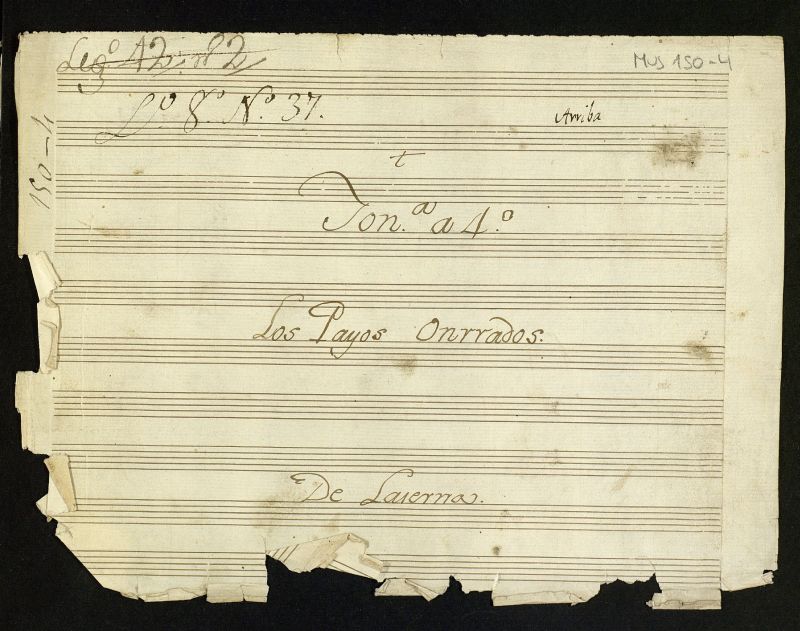 Leg.º 42 nº 2
MUS 150-4
L.º 8.º N.º 37.
Arriba
150-4
Ton.ª a 4.º
Los Payos Onrrados.
De Laserna.